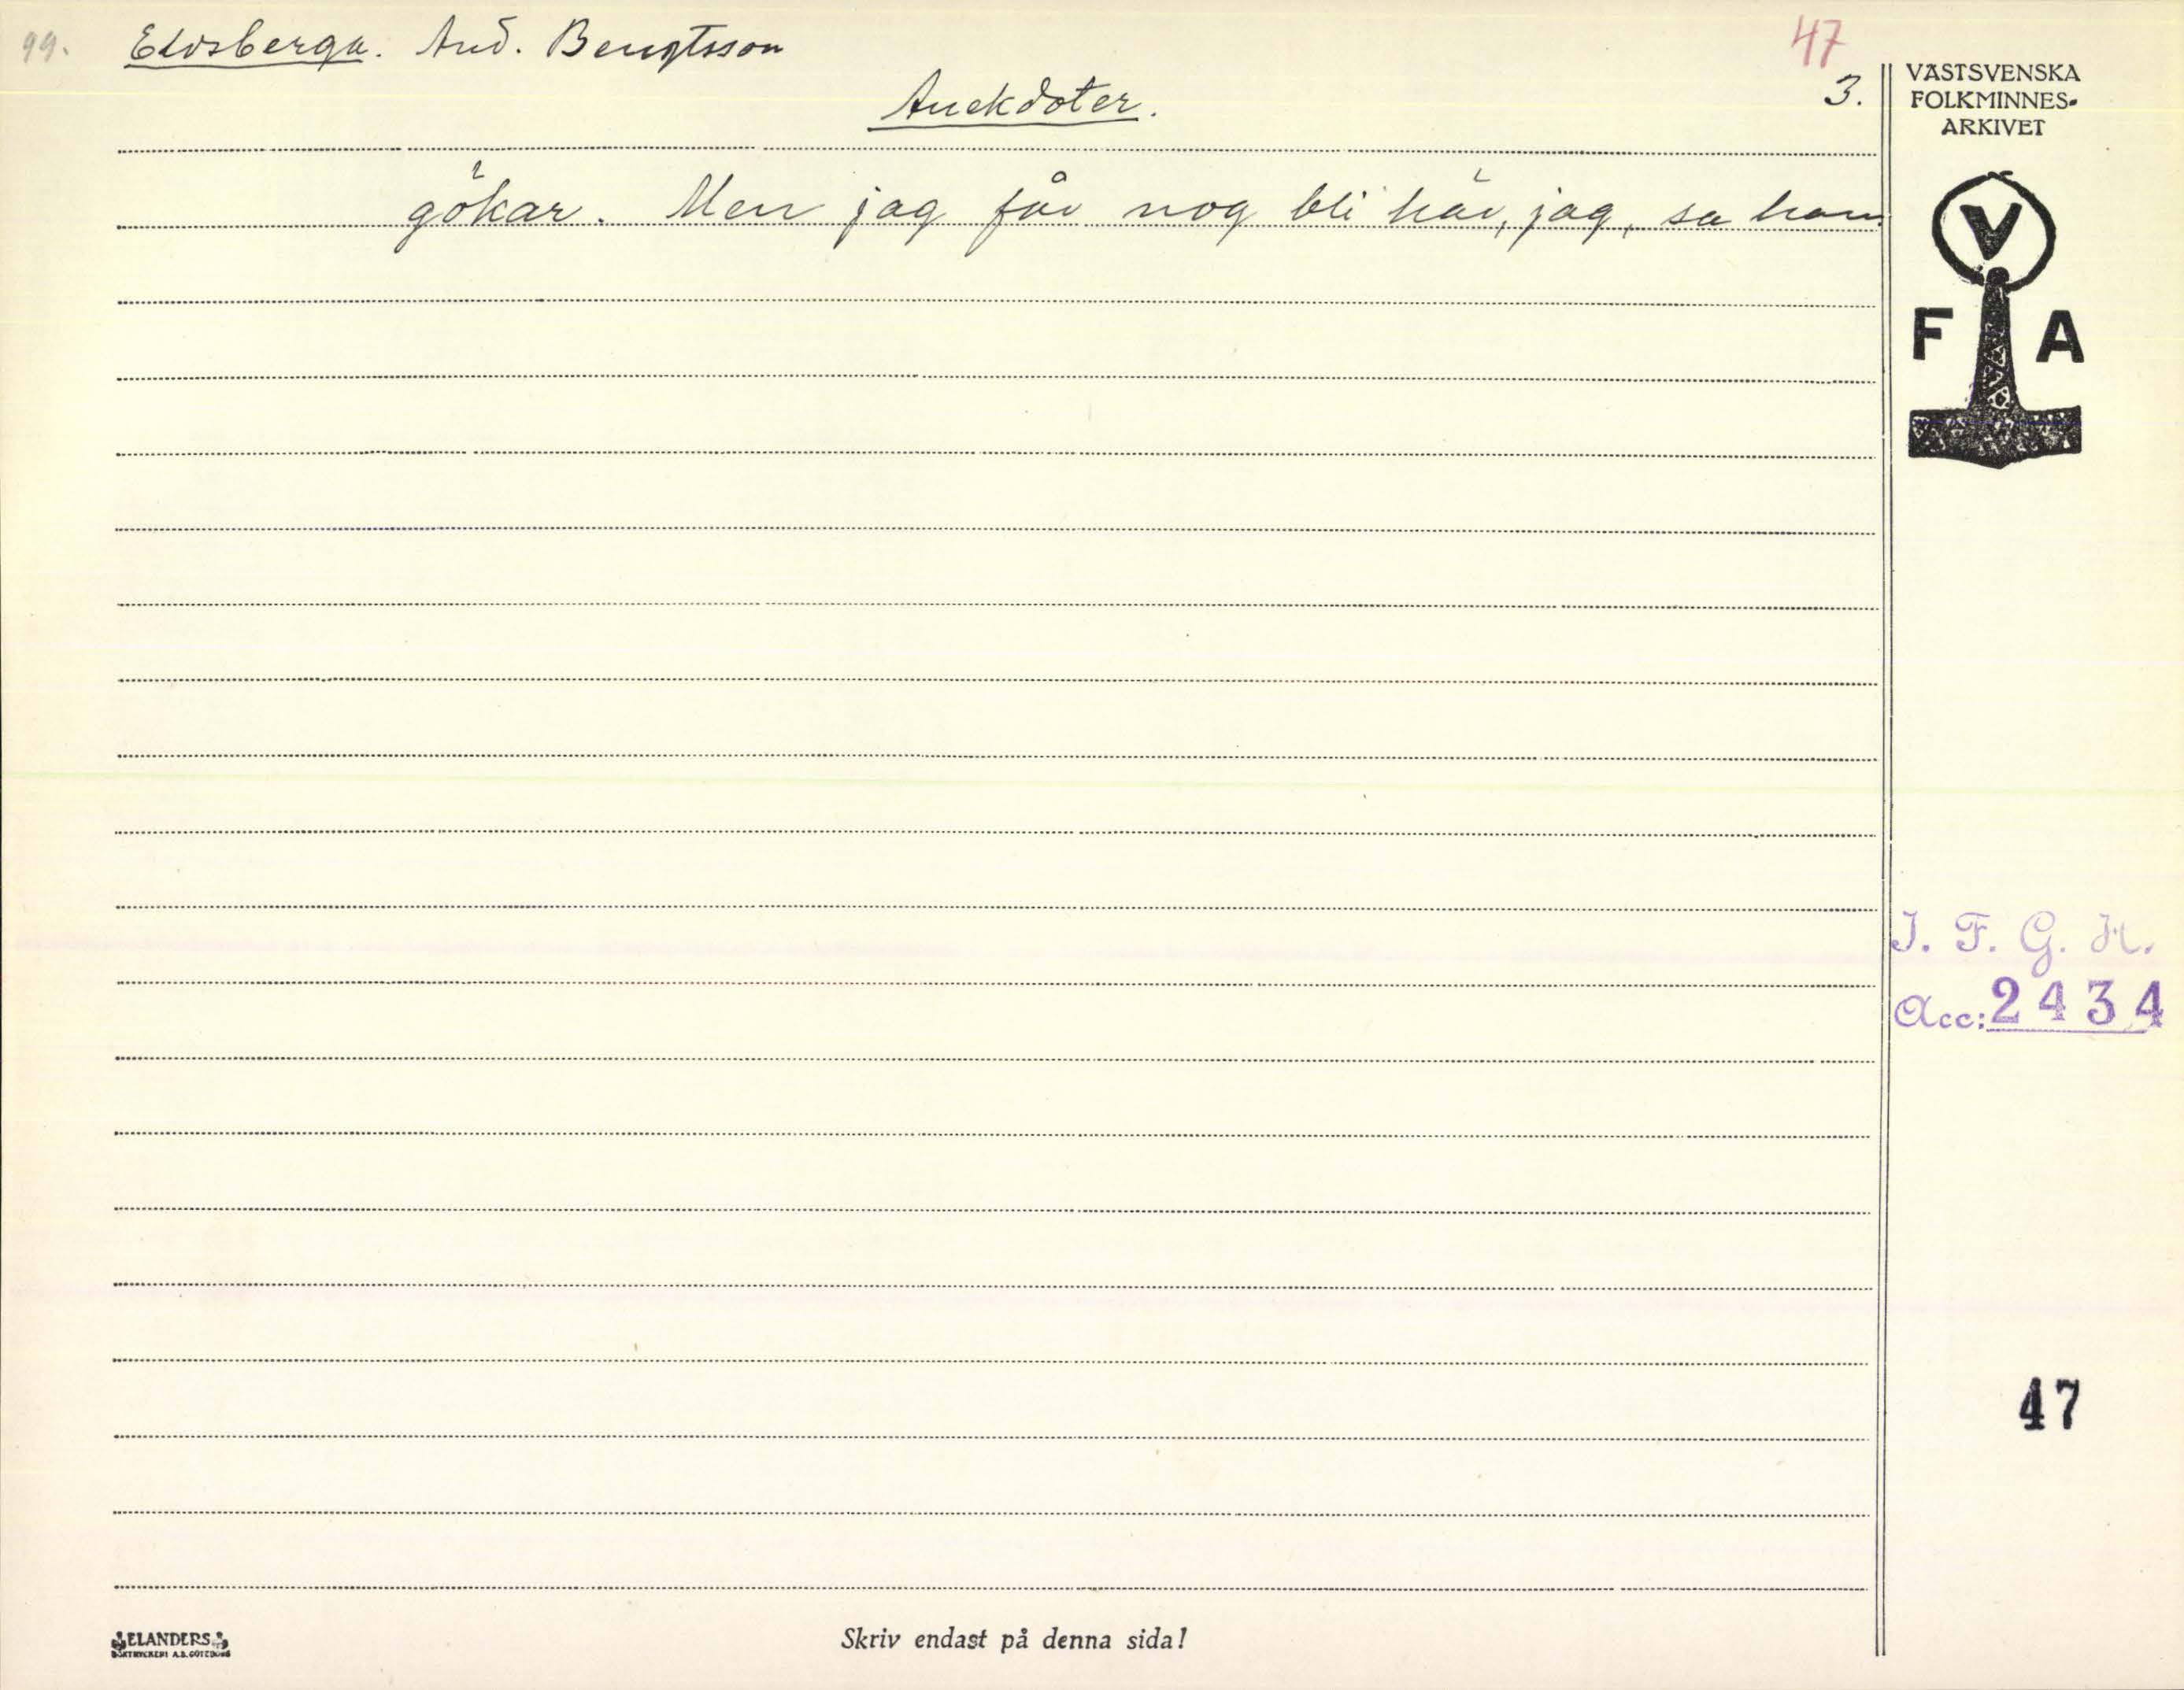 99. Eldsberga. And. Bengtsson
47
Anekdoter.
3.
gökar. Men jag får nog bli här, jag, sa han.
VÄSTSVENSKA
FOLKMINNES-
ARKIVET
V
F A
I. F. G. H.
Acc: 2434
47
ELANDERS
BOKTRYCKERI A.B. GÖTEBORG
Skriv endast på denna sida!